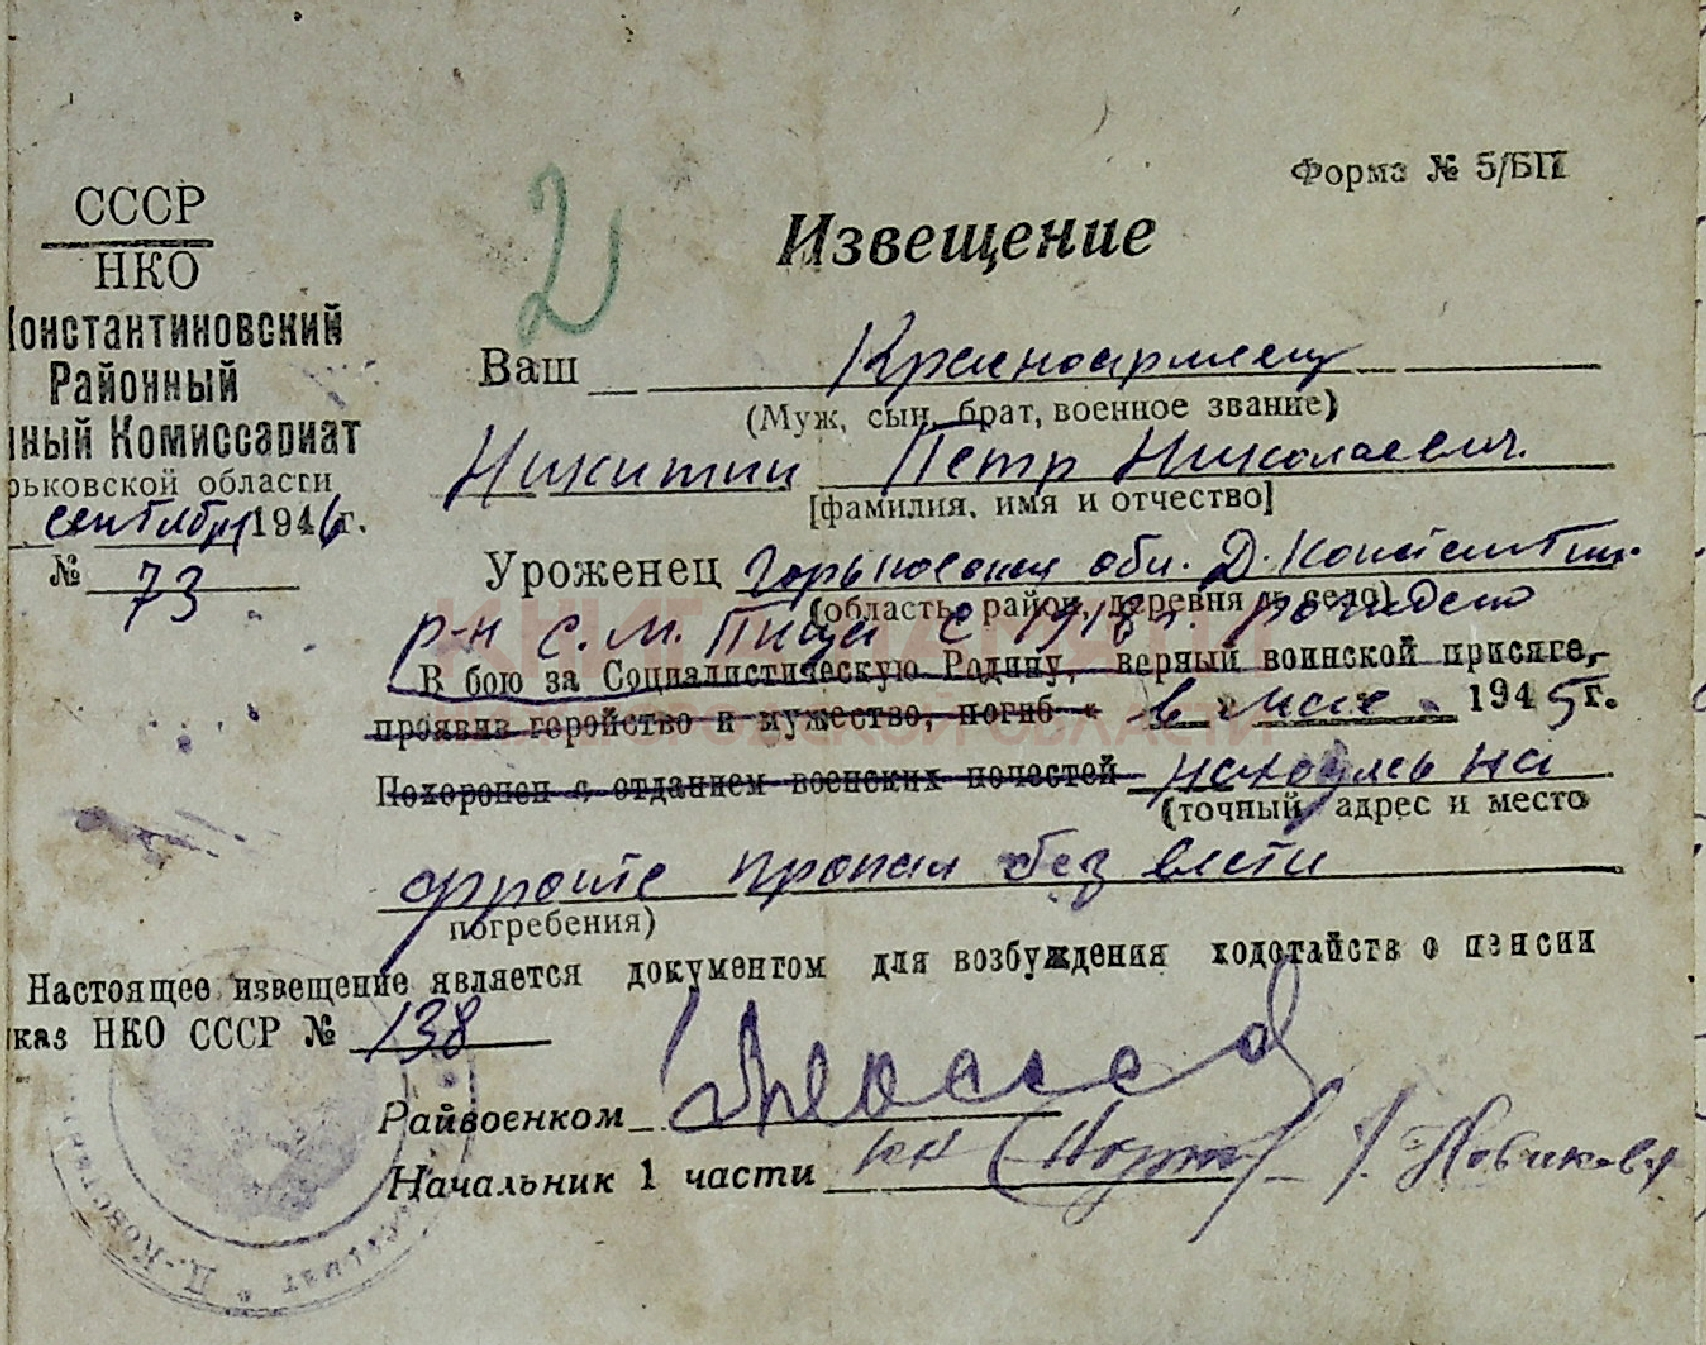 Форма № 5/БП
2
СССР
НКО
Константиновский
Районный
нный Комиссариат
рьковской области
сентября 1946г.
№ 73
Извещение
Ваш Красноармеец
(Муж, сын, брат, военное звание)
Никитин Петр Николаевич.
[фамилия, имя и отчество]
Уроженец Горьковская обл. Д. Константин.
(область, район, деревня и село)
р-н с. М. Пица с 1918 г. рождено
В бою за Социалистическую Родину, верный воинской присяге,
проявив геройство и мужество, погиб « в » мае 1945г.
Похоронен с отданием военских почестей находясь на
(точный адрес и место
фронте пропал без вести
погребения)
Настоящее извещение является документом для возбуждения ходотайств о пенсии
каз НКО СССР № 138
Райвоенком
Начальник 1 части
/. Новикова
КНИГА ПАМЯТИ
НИЖЕГОРОДСКОЙ ОБЛАСТИ